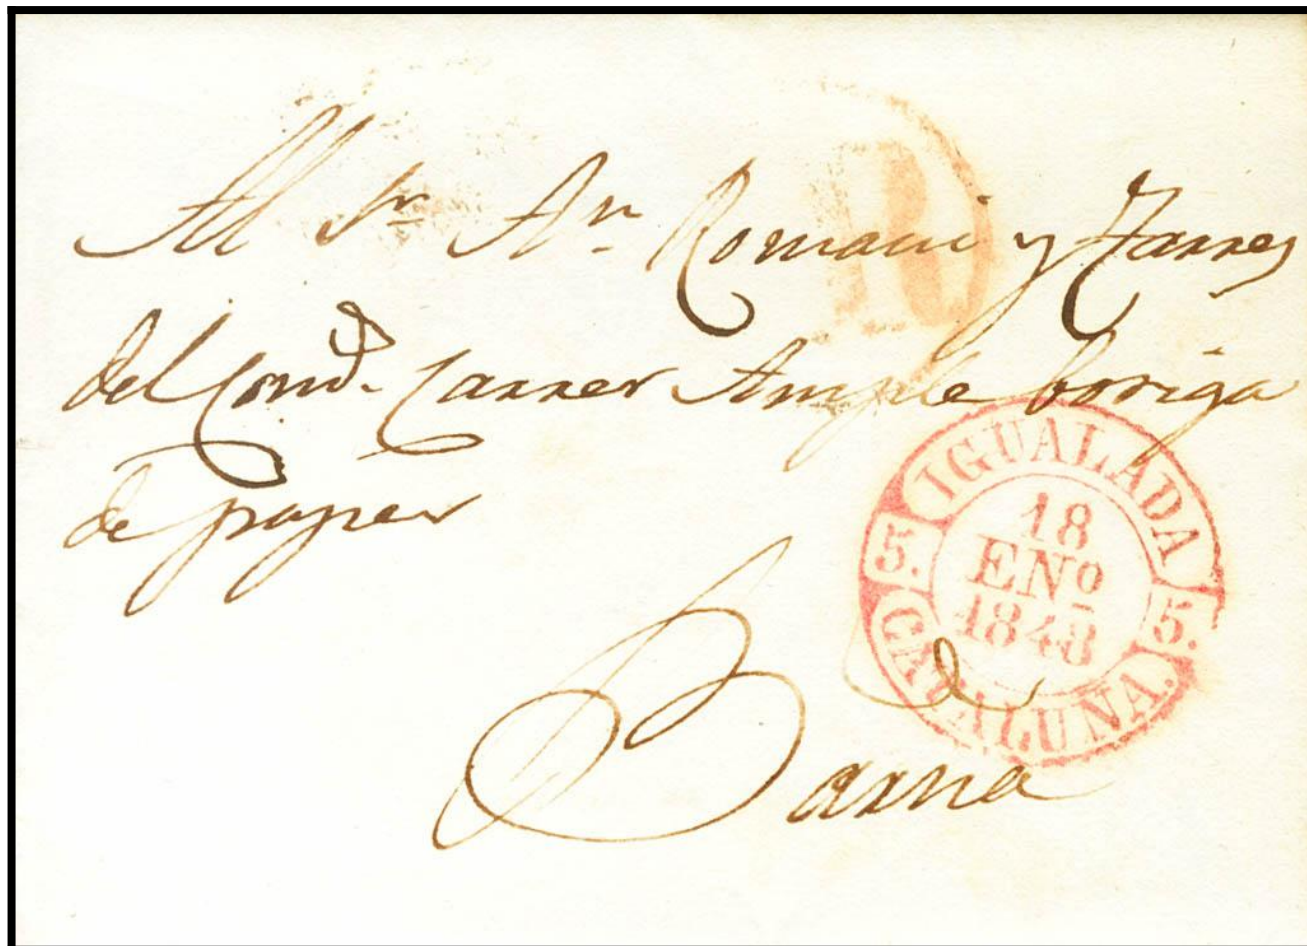 Al Sr. An. Romani y Tarres
del Comd. Carrer Ample botiga
de paper
Barna
IGUALADA
5. 18 5.
ENº
1848
CATALUÑA.
R